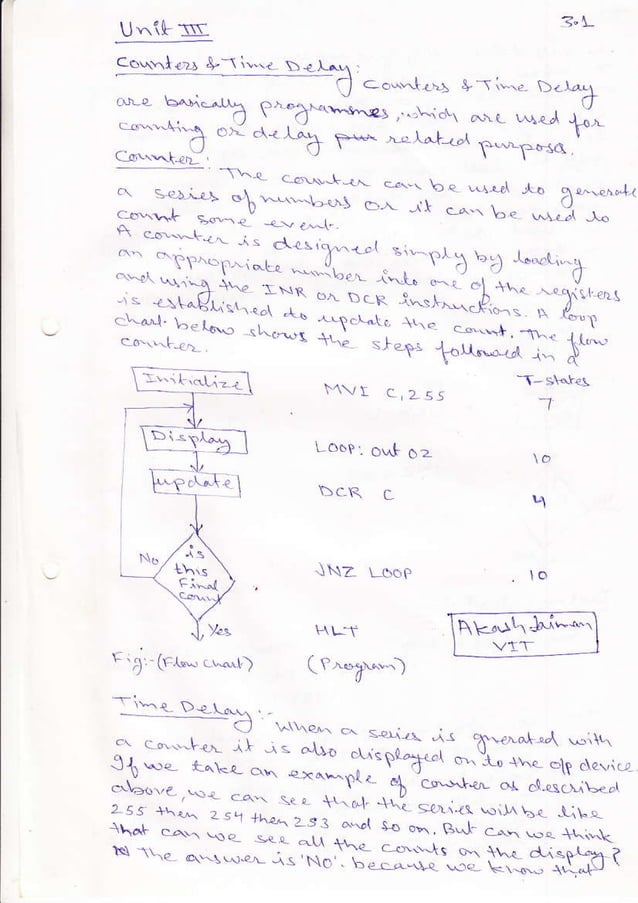 Unit III
3.1
Counters & Time Delay:
Counters & Time Delay
are basically programmes, which are used for
counting or delay pur related purpose.
Counter:
The counter can be used to generate
a series of numbers or it can be used to
count some event.
A counter is designed simply by loading
an appropriate number into one of the registers
and using the INR or DCR instructions. A loop
is established to update the count. The flow
chart below shows the steps followed in a
counter.
T-states
Initialize MVI C,255 7
Display LOOP: out 02 10
update DCR C 4
No
is
this
Final
count
JNZ LOOP 10
Yes HLT
Akash Jaiman
VIT
Fig:-(Flow chart) (Program)
Time Delay:-
When a series is generated with
a counter it is also displayed on to the o/p device.
If we take an example of counter as described
above, we can see that the series will be like
255 then 254 then 253 and so on. But can we think
that can we see all the counts on the display?
The answer is 'No'. because we know that